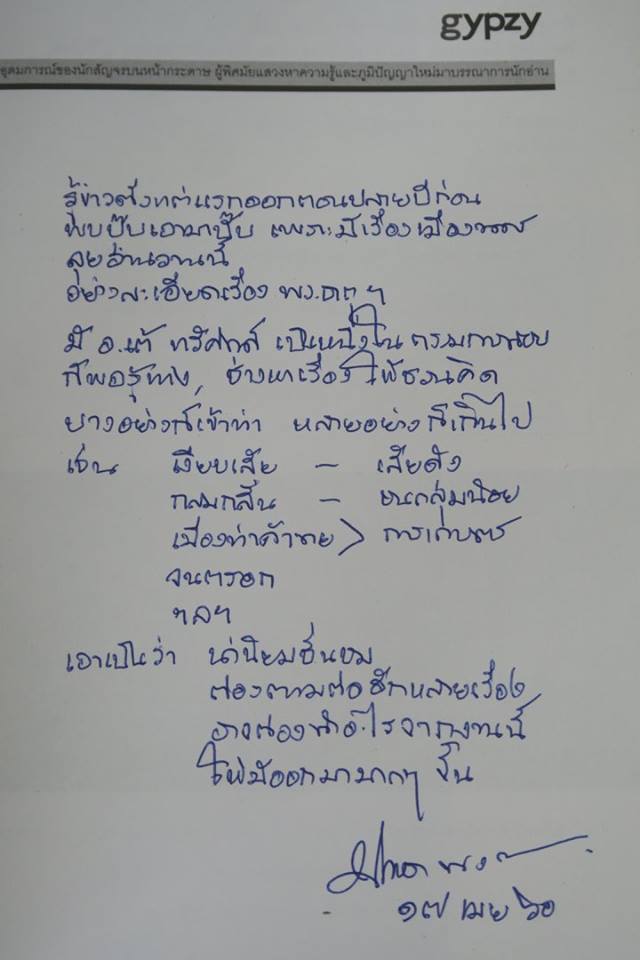 gypzy
อุดมการณ์ของนักสัญจรบนหน้ากระดาษ ผู้พิศมัยแสวงหาความรู้และภูมิปัญญาใหม่มาบรรณาการนักอ่าน
รู้ข่าวตั้งแต่แรกออกตอนปลายปีก่อน
พบปุ๊บเอามาปั๊บ เพราะมีเรื่องเมือง
ลุยอ่านวานนี้
อย่างละเอียดเรื่อง พระธาตุฯ
มี อ.เต้ ทวีศักดิ์ เป็นหนึ่งในกรรมการสอบ
ก็พอรู้ทาง, ช่างหาเรื่องให้ชวนคิด
บางอย่างก็เข้าท่า หลายอย่างก็เกินไป
เช่น เงียบเสีย – เสียดัง
กลมกลืน – ชนกลุ่มน้อย
เมืองท่าค้าขาย > การเกษตร
จนตรอก
ฯลฯ
เอาเป็นว่า น่านิยมชื่นชม
ต้องตามต่ออีกหลายเรื่อง
อาจต้องทำอะไรจากงานนี้
ให้มีออกมามากๆ ขึ้น
๑๗ เมย ๖๐